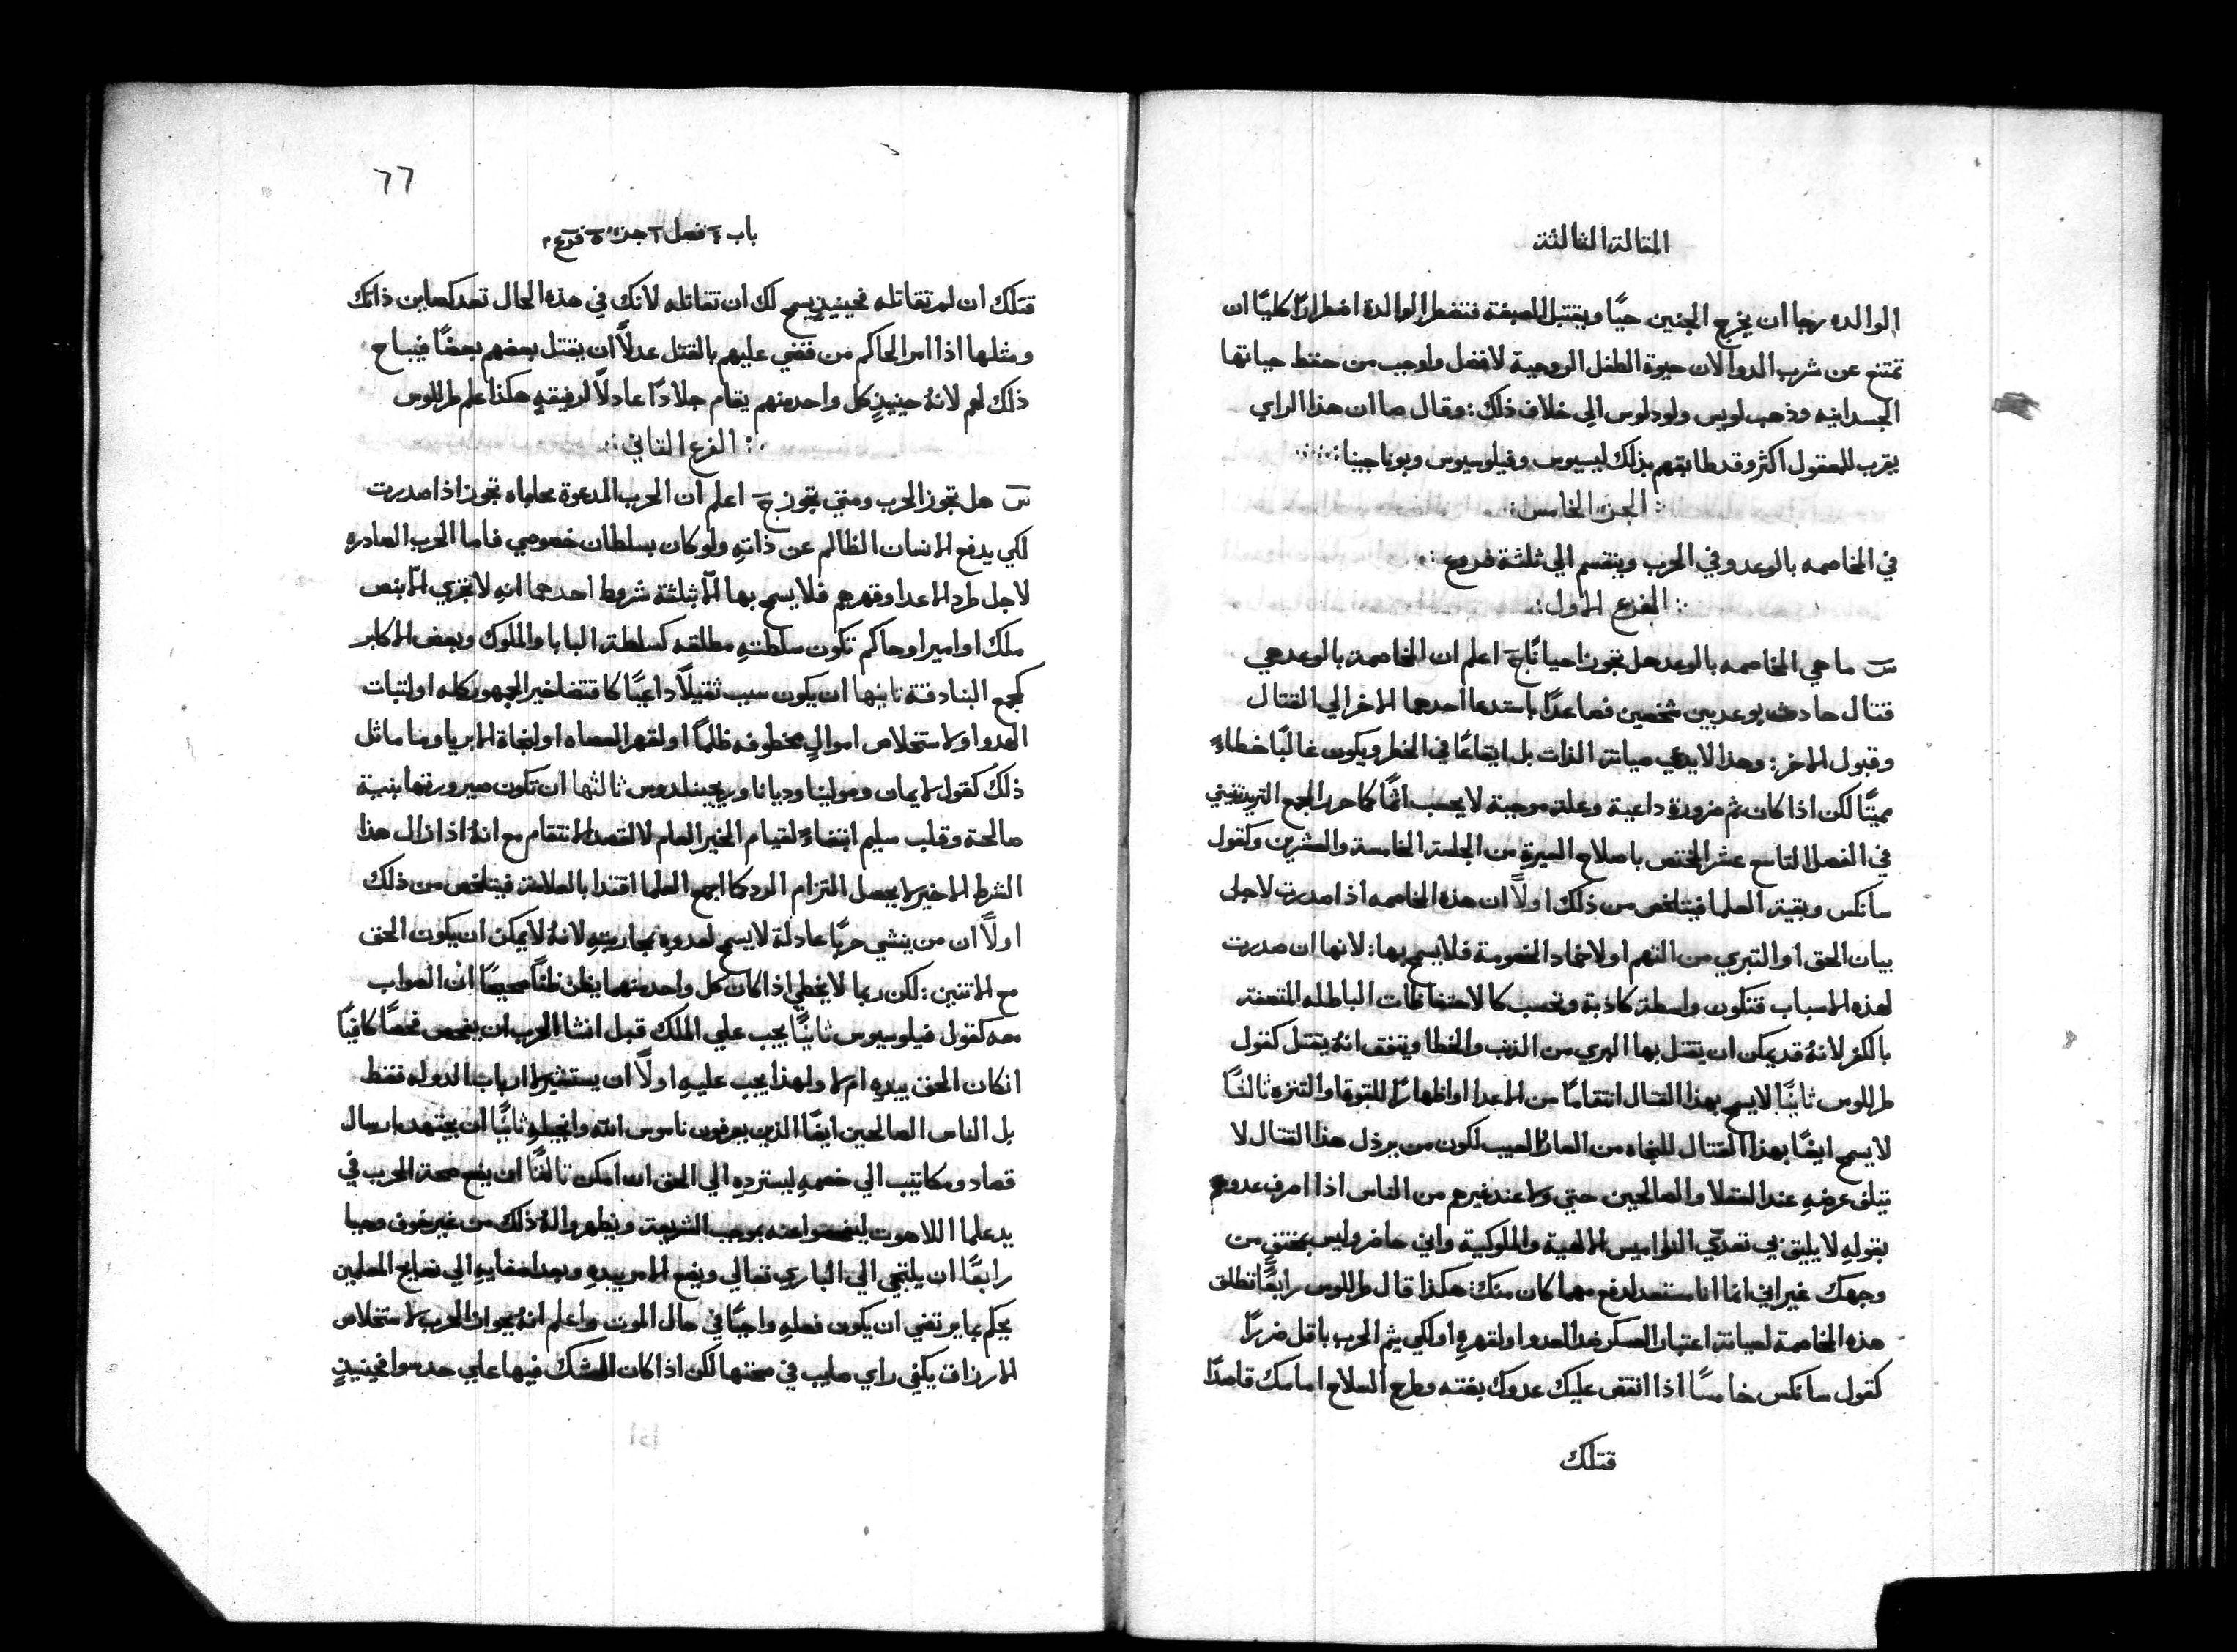 المقالة الثالثة
الوالده رجا ان يخرج الجنين حيًا ويقتبل الصبغة فتضطر الوالدة اضطرارًا كليًا ان
تمتنع عن شرب الدوا لان حيوة الطفل الروحية لافضل واوجب من حفظ حياتها
الجسدانيه وذهب لويس ولودلوس الي خلاف ذلك: وقال صا ان هذا الراي
يقرب للمعقول اكثر وقد طابقهم بذلك ليسيوس وفيلوسيوس وبوناجينا
الجزء الخامس
في المخاصمه بالوعد وفي الحرب وينقسم الي ثلثة فروع
الفرع الاول
س ما هي المخاصمه بالوعد هل تجوز احيانًا ج اعلم ان المخاصمة بالوعد هي
قتال حادث بوعد بين شخصين فصاعدًا باستدعا احدهما الاخر الي القتال
وقبول الاخر: وهذا لا يدعي صيانة الذات بل ايقاعًا في الخطر ويكون غالبًا خطاءً
مميتًا لكن اذا كان ثم ضرورة داعية وعلة موجبة لا يحسب اثمًا كما حرر المجمع التريدنتيني
في الفصل التاسع عشر المختص باصلاح السيرة من الجلسة الخامسة والعشرين وكقول
سانكس وبقية العلما فيتلخص من ذلك اولًا ان هذه المخاصمه اذا صدرت لاجل
بيان الحق او التبري من التهم او لاخماد الخصومة فلا يسمح بها: لانها ان صدرت
لهذه الاسباب فتكون واسطة كاذبة وتحسب كالاحتفاظات الباطله المتصفة
بالكفر لانهُ قد يمكن ان يقتل بها البري من الذنب والخطا ويتفق انهُ يقتل كقول
طرللوس ثانيًا لا يسمح بهذا القتال انتقامًا من الاعدا او اظهارًا للقوة او التنزه ثالثًا
لا يسمح ايضًا بهذا القتال للنجاه من العار المعيب لكون من يرذل هذا القتال لا
يتلف عرضهِ عند العقلا والصالحين حتي ولا عند غيرهم من الناس اذا اصرف عدوهم
بقولهِ لا يليق بي تعدّي النواميس الالهية والملوكية واني حاضر وليس بمختفٍ من
وجهك غير اني انما انا مستعد لدفع مهما كان منك: هكذا قال طرللوس رابعًا تطلق
هذه المخاصمة لصيانة اعتبار العسكر ضد العدو او لقهرهِ او لكي يتم الحرب باقل ضررًا
كقول سانكس خامسًا اذا انقض عليك عدوك بغته وطرح السلاح امامك قاصدًا
قتلك
٦٦
باب ٤ فصل ٦ جزء ٥ فرع ٢
قتلك ان لم تقاتله فحينيذٍ يسمح لك ان تقاتله لانك في هذه الحال تعد كصاين ذاتك
ومثلها اذا امر الحاكم من قضي عليهم بالقتل عدلًا ان يقتل بعضهم بعضًا فيباح
ذلك لهم لانهُ حينيذٍ كل واحد منهم يقام جلادًا عادلًا لرفيقهِ هكذا علم طرللوس
الفرع الثاني
س هل تجوز الحرب ومتي تجوز ج اعلم ان الحرب المدعوة محاماه تجوز اذا صدرت
لكي يدفع الانسان الظالم عن ذاتهِ ولو كان بسلطان خصوصي فاما الحرب الصادره
لاجل طرد الاعدا وقهرهم فلا يسمح بها الّا بثلثة شروط احدهما انهِ لا تجري الّا بنص
ملك او امير او حاكم تكون سلطتهِ مطلقه كسلطة البابا والملوك وبعض الاكابر
كجمع البنادقة ثانيها ان يكون سبب ثقيلًا داعيًا كاقتضا خير الجمهور كله او لثبات
العدو او لاستخلاص اموالٍ مخطوفه ظلمًا او لقهر العصاه او لنجاة الابريا وما ماثل
ذلك كقول لايمان ومولينا وديانا وريجينلدوس ثالثها ان تكون صيرورتها بنية
صالحة وقلب سليم ابتغاءً لقيام الخير العام لا لقصد الانتقام مع انهُ اذا زال هذا
الشرط الاخير لا يحصل التزام الرد كما اجمع العلما اقتدا بالعلامة فيتلخص من ذلك
اولًا ان من ينشي حربًا عادلة لا يسمح لعدوهِ بمحاربتهِ لانهُ لا يمكن ان يكون الحق
مع الاثنين: لكن ربما لا يخطي اذا كان كل واحد منهما يظن ظنًا صحيحًا ان الصواب
معه كقول فيلوسيوس ثانيًا يجب علي الملك قبل انشا الحرب ان يفحص فحصًا كافيًا
انكان الحق بيدهِ ام لا ولهذا يجب عليهِ اولًا ان يستشير لا ارباب الدوله فقط
بل الناس الصالحين ايضًا الذين يعرفون ناموس الله وانجيلهِ ثانيًا ان يجتهد بارسال
قصاد ومكاتيب الي خصمهِ ليستردهِ الي الحق ان امكن ثالثًا ان يضع صحة الحرب في
يد علما اللاهوت ليفحصوا عنه بموجب الشريعة ويظهروا لهُ ذلك من غير خوف وحيا
رابعًا ان يلتجي الي الباري تعالي ويضع الامر بيدهِ وبعد اصغايهِ الي نصايح المعلمين
يحكم بما يرتضي ان يكون فعلهِ واجبًا في حال الموت واعلم انهُ بجواز الحرب لاستخلاص
الارزاق يكفي راي صايب في صحتها لكن اذا كان الشك فيها علي حد سوا فحينيذٍ
اذا